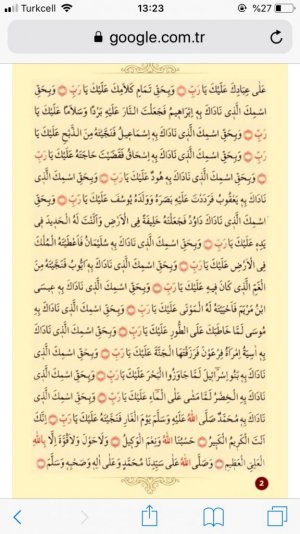 Turkcell 13:23 %27
google.com.tr
عَلٰى عِبَادِكَ عَلَيْكَ يَا رَبِّ وَبِحَقِّ تَمَامِ كَلَامِكَ عَلَيْكَ يَا رَبِّ وَبِحَقِّ
اسْمِكَ الَّذِى نَادَاكَ بِهِ اِبْرَاهِيمُ فَجَعَلْتَ النَّارَ عَلَيْهِ بَرْدًا وَسَلَامًا عَلَيْكَ يَا
رَبِّ وَبِحَقِّ اسْمِكَ الَّذِى نَادَاكَ بِهِ اِسْمَاعِيلُ فَنَجَّيْتَهُ مِنَ الذَّبْحِ عَلَيْكَ يَا
رَبِّ وَبِحَقِّ اسْمِكَ الَّذِى نَادَاكَ بِهِ اِسْحَاقُ فَقَضَيْتَ حَاجَتَهُ عَلَيْكَ يَا رَبِّ
وَبِحَقِّ اسْمِكَ الَّذِى نَادَاكَ بِهِ هُودٌ عَلَيْكَ يَا رَبِّ وَبِحَقِّ اسْمِكَ الَّذِى
نَادَاكَ بِهِ يَعْقُوبُ فَرَدَدْتَ عَلَيْهِ بَصَرَهُ وَوَلَدَهُ يُوسُفَ عَلَيْكَ يَا رَبِّ وَبِحَقِّ
اسْمِكَ الَّذِى نَادَاكَ دَاوُدُ فَجَعَلْتَهُ خَلِيفَةً فِى الْاَرْضِ وَاَلَنْتَ لَهُ الْحَدِيدَ فِى
يَدِهِ عَلَيْكَ يَا رَبِّ وَبِحَقِّ اسْمِكَ الَّذِى نَادَاكَ بِهِ سُلَيْمَانُ فَاَعْطَيْتَهُ الْمُلْكَ
فِى الْاَرْضِ عَلَيْكَ يَا رَبِّ وَبِحَقِّ اسْمِكَ الَّذِى نَادَاكَ بِهِ اَيُّوبُ فَنَجَّيْتَهُ مِنَ
الْغَمِّ الَّذِى كَانَ فِيهِ عَلَيْكَ يَا رَبِّ وَبِحَقِّ اسْمِكَ الَّذِى نَادَاكَ بِهِ عِيسَى
ابْنُ مَرْيَمَ فَاَحْيَيْتَ لَهُ الْمَوْتٰى عَلَيْكَ يَا رَبِّ وَبِحَقِّ اسْمِكَ الَّذِى نَادَاكَ بِهِ
مُوسٰى لَمَّا خَاطَبَكَ عَلَى الطُّورِ عَلَيْكَ يَا رَبِّ وَبِحَقِّ اسْمِكَ الَّذِى نَادَاكَ
بِهِ اٰسِيَةُ امْرَاَةُ فِرْعَوْنَ فَرَزَقْتَهَا الْجَنَّةَ عَلَيْكَ يَا رَبِّ وَبِحَقِّ اسْمِكَ الَّذِى
نَادَاكَ بِهِ بَنُو اِسْرَائِيلَ لَمَّا جَاوَزُوا الْبَحْرَ عَلَيْكَ يَا رَبِّ وَبِحَقِّ اسْمِكَ الَّذِى
نَادَاكَ بِهِ الْخِضْرُ لَمَّا مَشٰى عَلَى الْمَاءِ عَلَيْكَ يَا رَبِّ وَبِحَقِّ اسْمِكَ الَّذِى
نَادَاكَ بِهِ مُحَمَّدٌ صَلَّى اللهُ عَلَيْهِ وَسَلَّمَ يَوْمَ الْغَارِ فَنَجَّيْتَهُ عَلَيْكَ يَا رَبِّ اِنَّكَ
اَنْتَ الْكَرِيمُ الْكَبِيرُ حَسْبُنَا اللهُ وَنِعْمَ الْوَكِيلُ وَلَا حَوْلَ وَلَا قُوَّةَ اِلَّا بِاللهِ
الْعَلِىِّ الْعَظِيمِ وَصَلَّى اللهُ عَلٰى سَيِّدِنَا مُحَمَّدٍ وَعَلٰى اٰلِهِ وَصَحْبِهِ وَسَلَّمَ
2